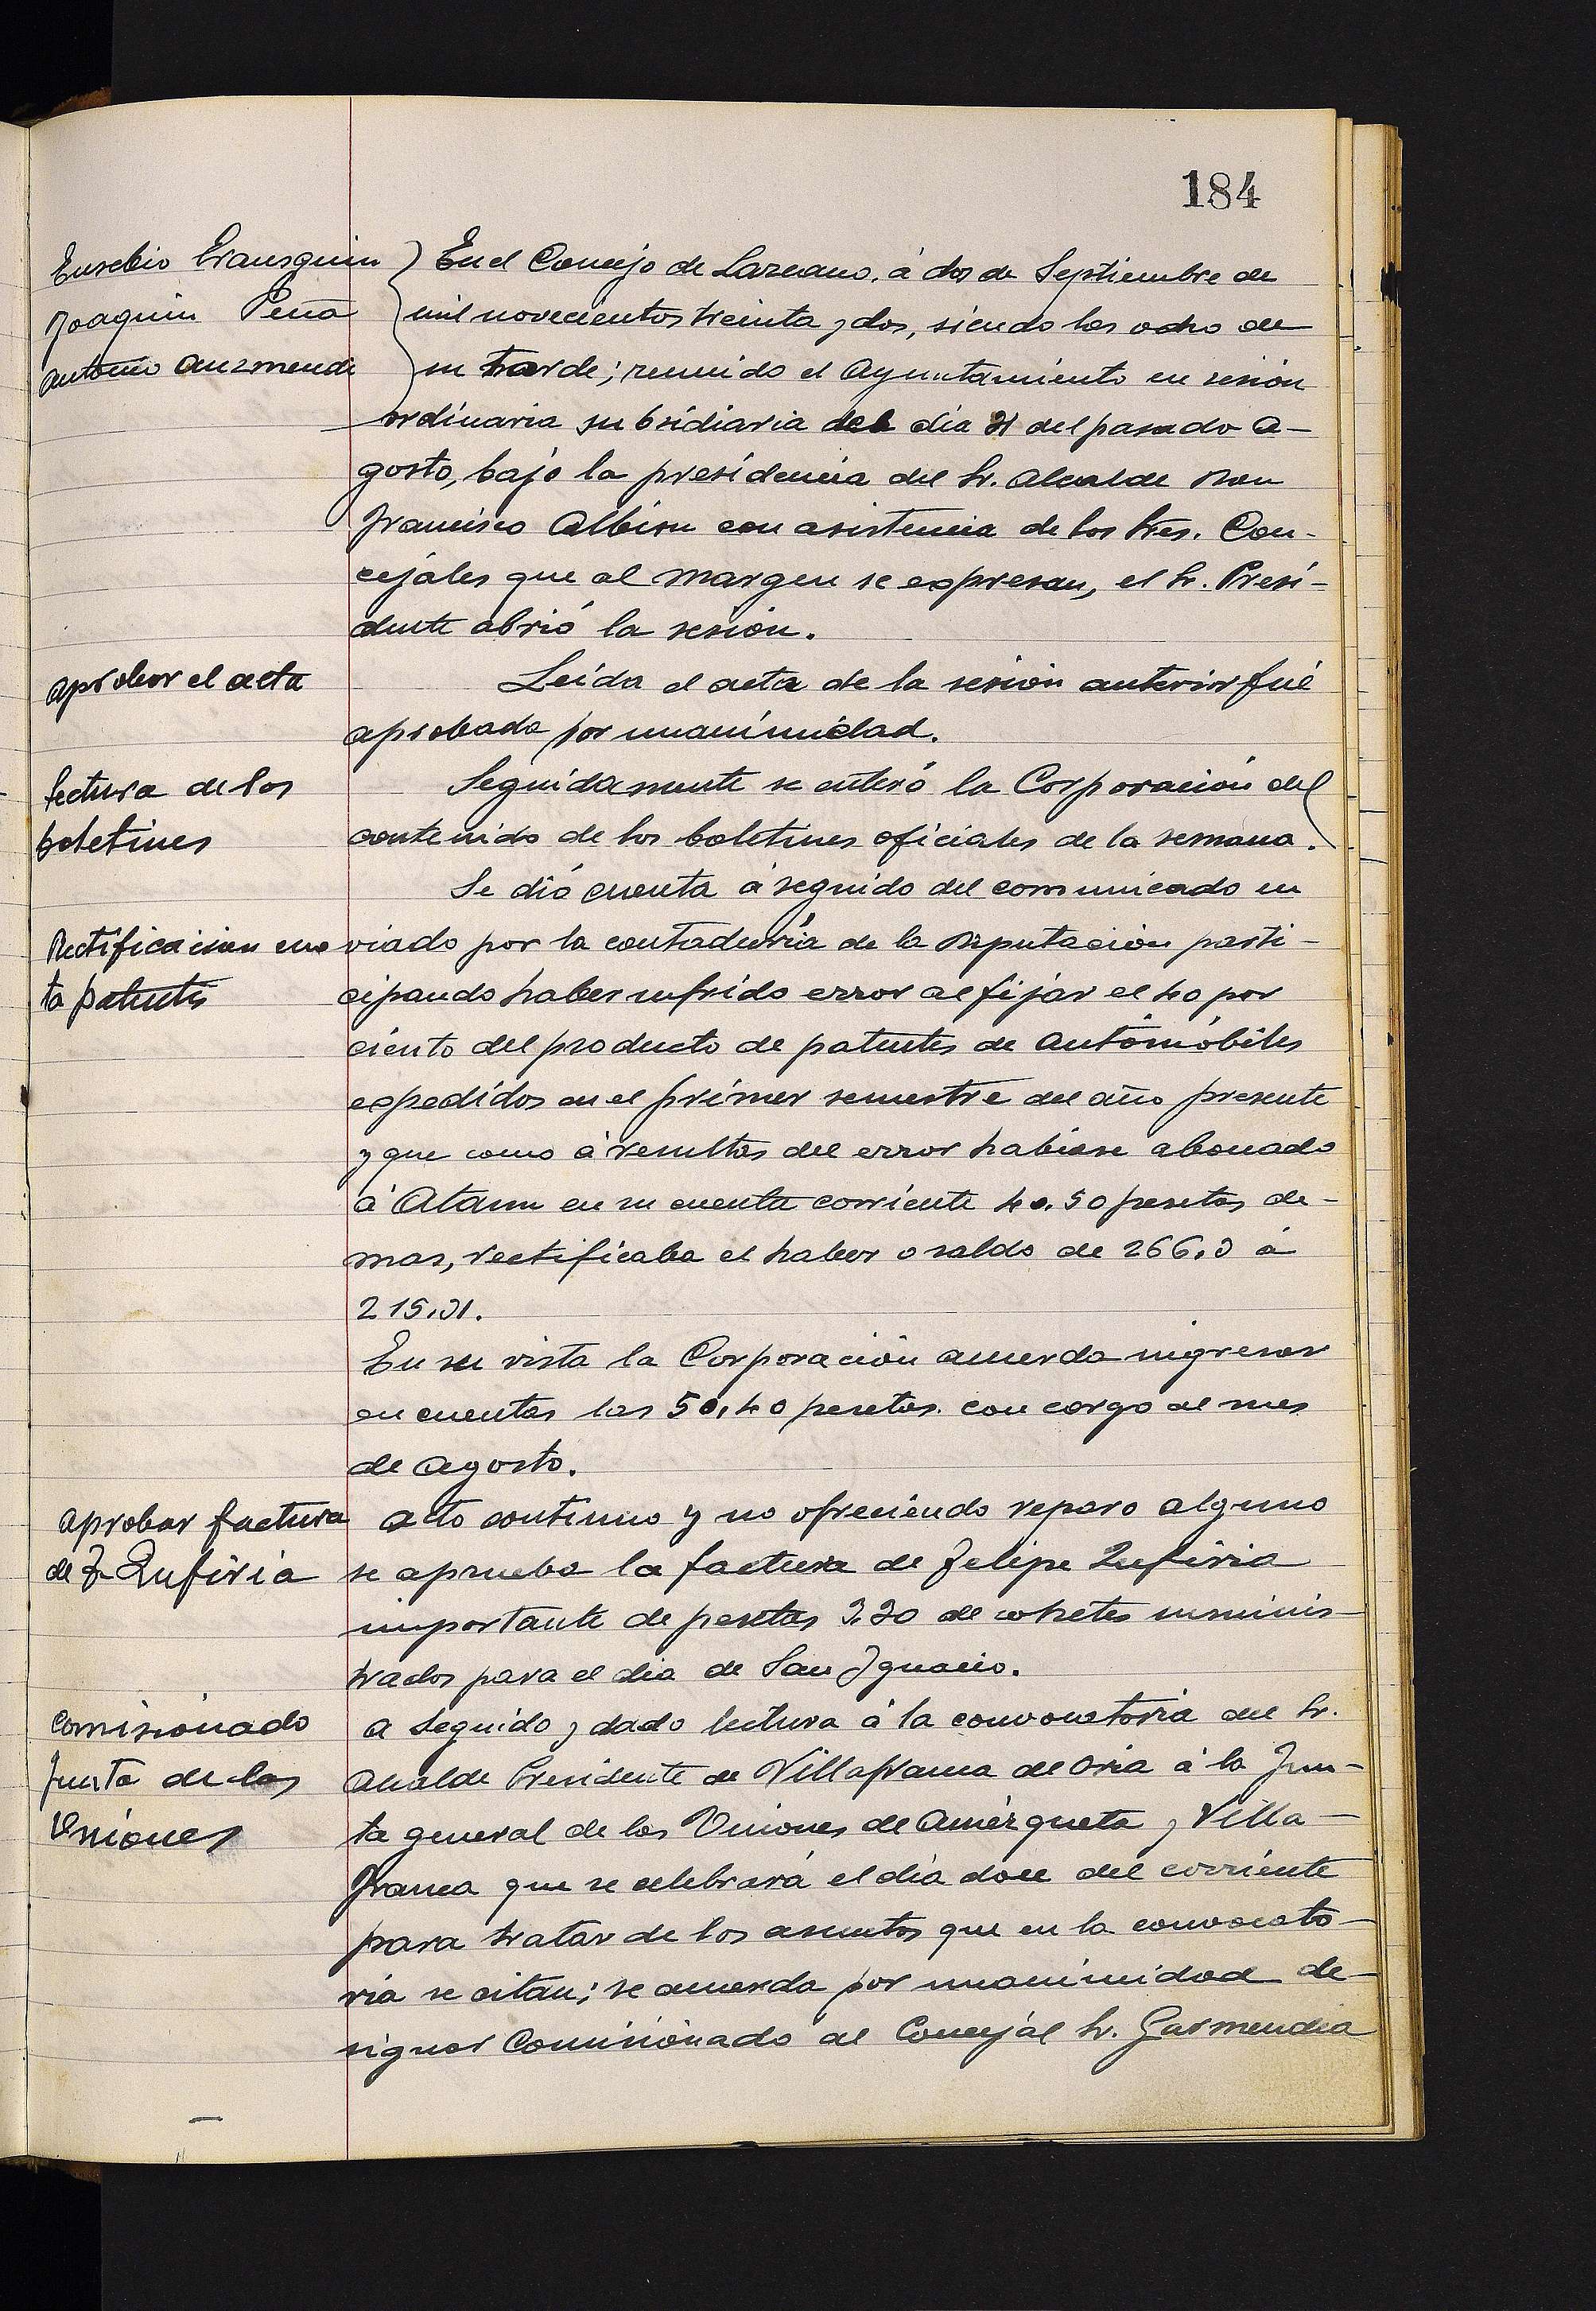 184
Eusebio Erausquin
Joaquin Peña
Antonio Auzmendi
En el Concejo de Lazcano, á dos de Septiembre de
mil novecientos treinta y dos, siendo las ocho de
su tarde; reunido el Ayuntamiento en sesión
ordinaria subsidiaria del dia 31 del pasado A-
gosto, bajo la presidencia del Sr. Alcalde Don
Francisco Albisu con asistencia de los Sres. Con-
cejáles que al margen se expresan, el Sr. Presi-
dente abrió la sesión.
Aprobar el acta
Leida el acta de la sesión anterior fué
aprobada por unanimidad.
Lectura de los
boletines
Seguidamente se enteró la Corporación del
contenido de los boletines oficiales de la semana.
Se dió cuenta á seguido del comunicado en
Rectificacion cuo
ta patentes
viado por la contaduría de la Diputación parti-
cipando haber sufrido error al fijar el 40 por
ciento del producto de patentes de automóbiles
expedidos en el primer semestre del año presente
y que como á resultas del error habiase abonado
á Ataun en su cuenta corriente 40.50 pesetas de-
mas, rectificaba el haber o saldo de 266,0 á
215,31.
En su vista la Corporación acuerda ingresar
en cuentas las 50,40 pesetas con cargo al mes
de Agosto.
Aprobar factura
de F. Zufiria
Acto continuo y no ofreciendo reparo alguno
se aprueba la factura de Felipe Zufiria
importante de pesetas 3.20 de cohetes suminis-
trados para el dia de San Ignacio.
Comisionado
Junta de las
Uniones
A seguido y dado lectura á la convocatoria del Sr.
Alcalde Presidente de Villafranca de Oria á la Jun-
ta general de las Uniones de Amézqueta y Villa-
franca que se celebrará el día doce del corriente
para tratar de los asuntos que en la convocato-
ria se citan; se acuerda por unanimidad de-
signar Comisionado al Concejál Sr. Garmendia